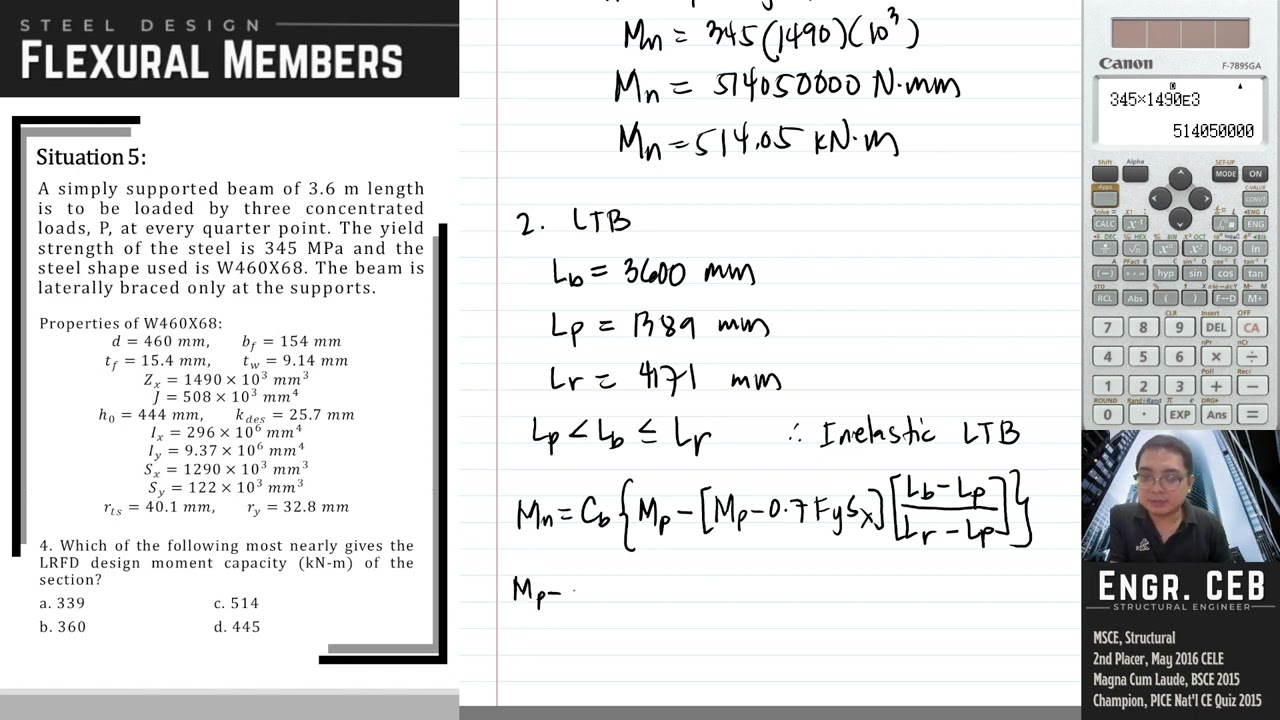 STEEL DESIGN
FLEXURAL MEMBERS
Situation 5:
A simply supported beam of 3.6 m length
is to be loaded by three concentrated
loads, P, at every quarter point. The yield
strength of the steel is 345 MPa and the
steel shape used is W460X68. The beam is
laterally braced only at the supports.
Properties of W460X68:
d = 460 mm, b_f = 154 mm
t_f = 15.4 mm, t_w = 9.14 mm
Z_x = 1490 × 10³ mm³
J = 508 × 10³ mm⁴
h_0 = 444 mm, k_des = 25.7 mm
I_x = 296 × 10⁶ mm⁴
I_y = 9.37 × 10⁶ mm⁴
S_x = 1290 × 10³ mm³
S_y = 122 × 10³ mm³
r_ts = 40.1 mm, r_y = 32.8 mm
4. Which of the following most nearly gives the
LRFD design moment capacity (kN-m) of the
section?
a. 339 c. 514
b. 360 d. 445
Mn = 345(1490)(10³)
Mn = 514050000 N·mm
Mn = 514.05 kN·m
2. LTB
Lb = 3600 mm
Lp = 1389 mm
Lr = 4171 mm
Lp < Lb ≤ Lr ∴ Inelastic LTB
Mn = Cb { Mp − [Mp − 0.7FySx] [(Lb − Lp)/(Lr − Lp)] }
Mp −
Canon
F-789SGA
345×1490E3
514050000
Shift Alpha SET-UP
MODE ON
Apps
CALC
ENG
hyp sin cos tan
RCL Abs ( ) F↔D M+
7 8 9 DEL CA
4 5 6 × ÷
1 2 3 + −
0 · EXP Ans =
ENGR. CEB
STRUCTURAL ENGINEER
MSCE, Structural
2nd Placer, May 2016 CELE
Magna Cum Laude, BSCE 2015
Champion, PICE Nat'l CE Quiz 2015